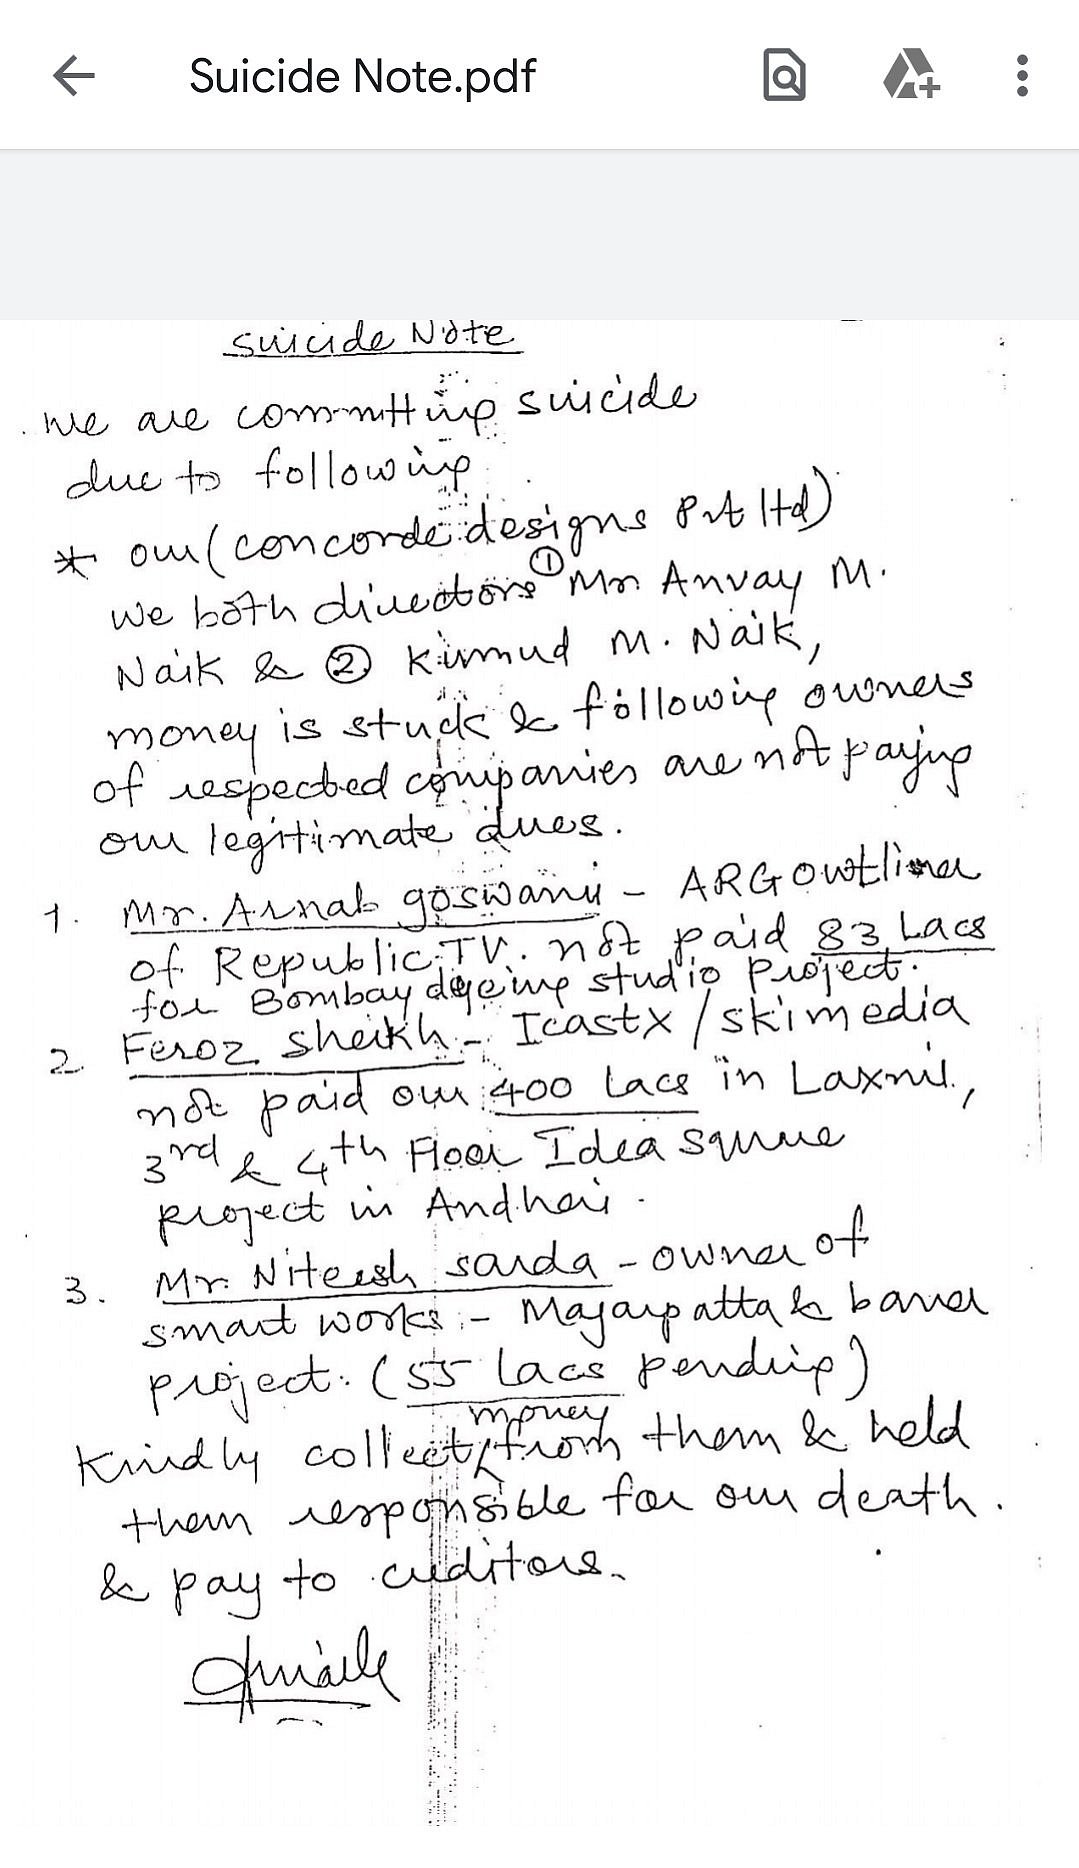 Suicide Note.pdf
Suicide Note
We are committing suicide
due to following
* our (concorde designs Pvt ltd)
we both directors ① Mr Anvay M.
Naik & ② Kumud M. Naik,
money is stuck & following owners
of respected companies are not paying
our legitimate dues.
1. Mr. Arnab goswami - ARG Outlier
of Republic TV. not paid 83 Lacs
for Bombay studio Project.
2 Feroz sheikh - Icastx / skimedia
not paid our 400 Lacs in Laxmi,
3rd & 4th Floor Idea Square
project in Andheri.
3. Mr. Niteesh sarda - owner of
smart works :- Magarpatta & baner
project. (55 Lacs pending)
money
Kindly collect from them & held
them responsible for our death.
& pay to creditors.